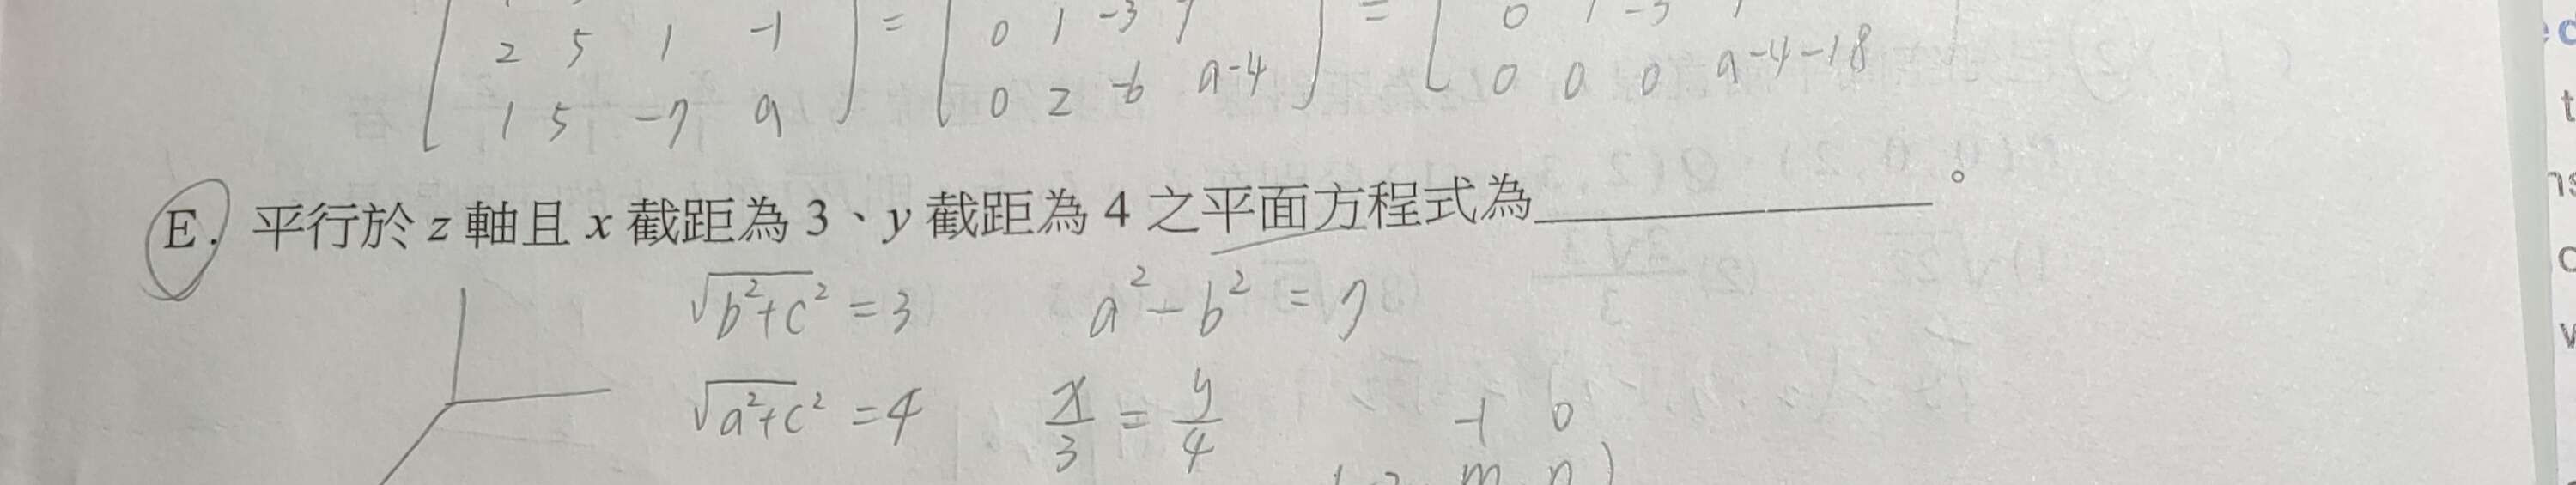 2 5 1 -1 = 0 1 -3 7 = 0 1 -3 7
1 5 -7 a 0 2 -6 a-4 0 0 0 a-4-18
E. 平行於 z 軸且 x 截距為 3、y 截距為 4 之平面方程式為 。
√b²+c² = 3 a² - b² = 7
√a²+c² = 4 x/3 = y/4 -1 6
m n )